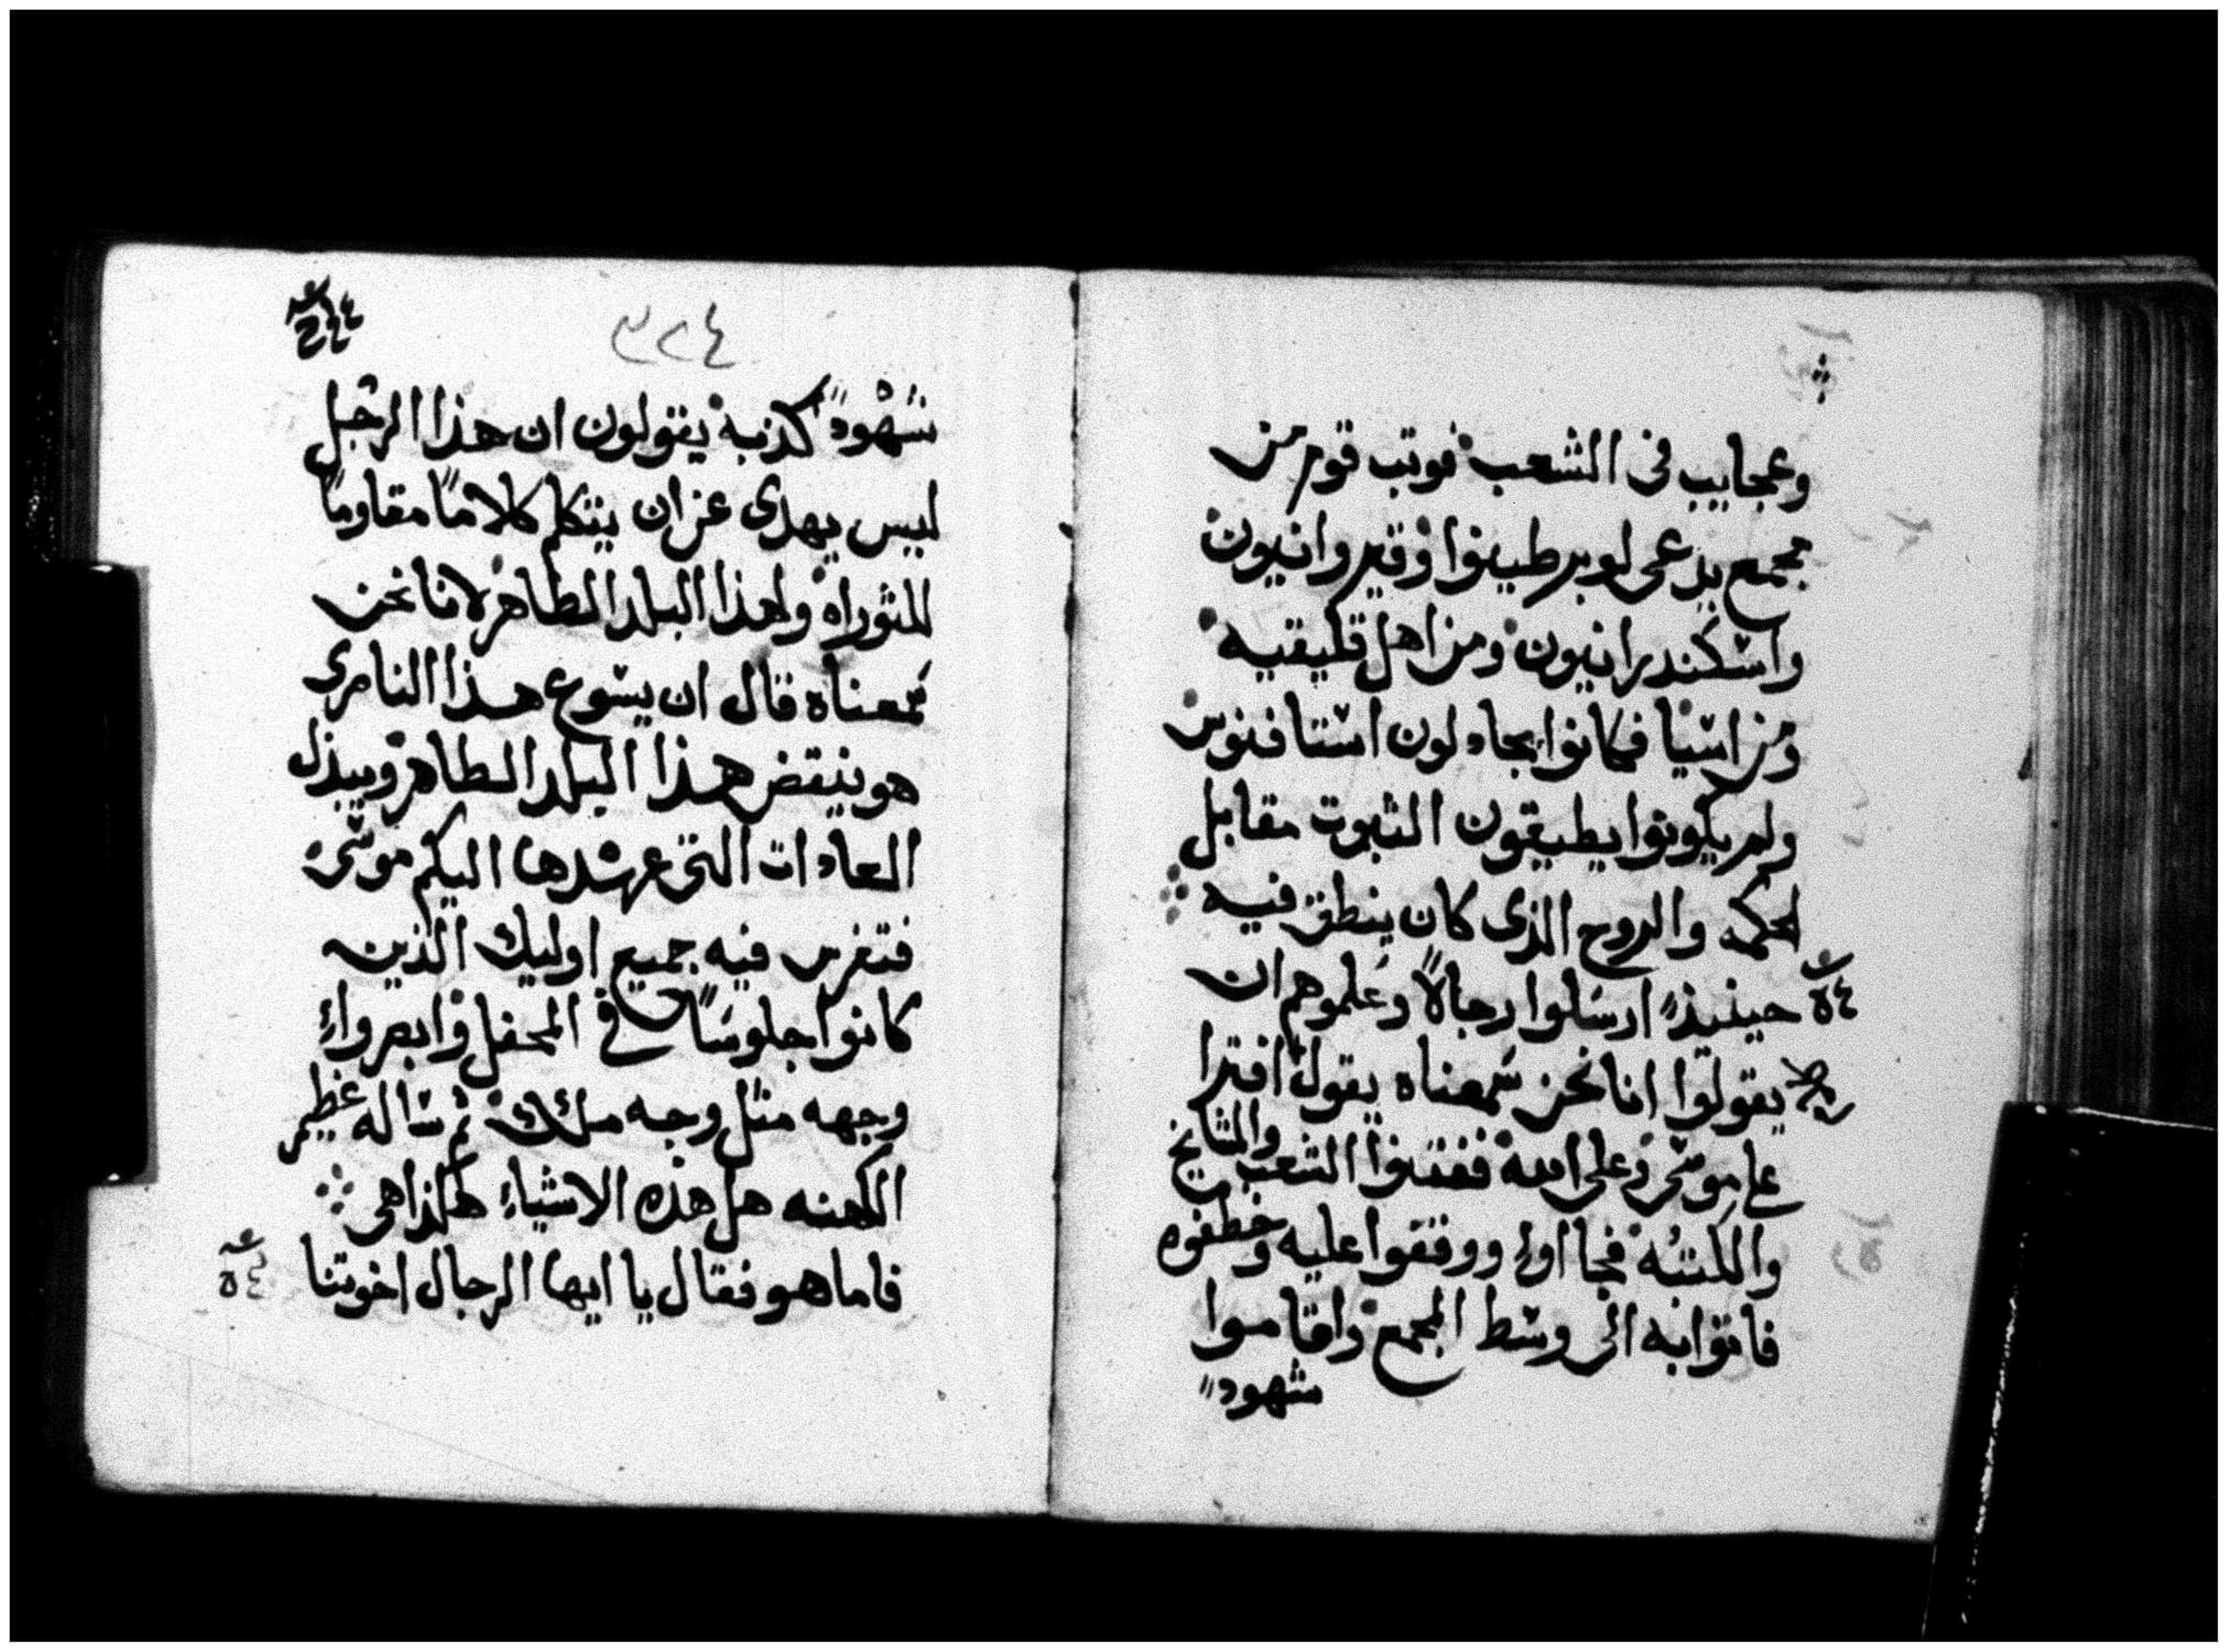 وعجايب فى الشعب فوتب قوم من
مجمع يدعى لوبرطينوا وقيروانيون
واسكندرانيون ومن اهل قليقيه
ومن اسيا فكانوا يجادلون استافنوس
ولم يكونوا يطيقون الثبوت مقابل
لحكمه والروح الذى كان ينطق فيه
٥٤ حينيذٍ ارسلوا رجالاً وعلموهم ان
يقولوا اننا نحن سمعناه يقول افترا
على موسى وعلى الله ففتنوا الشعب والمشايخ
والكتبه فجااوا ووقفوا عليه وخطفوه
فاتوا به الى وسط المجمع واقاموا
شهود
٣٢٤
شهود كذبه يقولون ان هذا الرجل
ليس يهدى عن ان يتكلم كلاماً مقاوماً
للتوراه ولهذا البلد الطاهر لاننا نحن
سمعناه قال ان يسوع هذا الناصرى
هو ينقض هذا البلد الطاهر ويبذل
العادات التى عهدها اليكم موسى
فتفرس فيه جميع اوليك الذين
كانوا جلوساً فى المحفل وابصروا
وجهه مثل وجه ملاك ثم ساله عظيم
الكهنه هل هذه الاشياء هكذا هى
فاما هو فقال يا ايها الرجال اخوتنا
٥٤